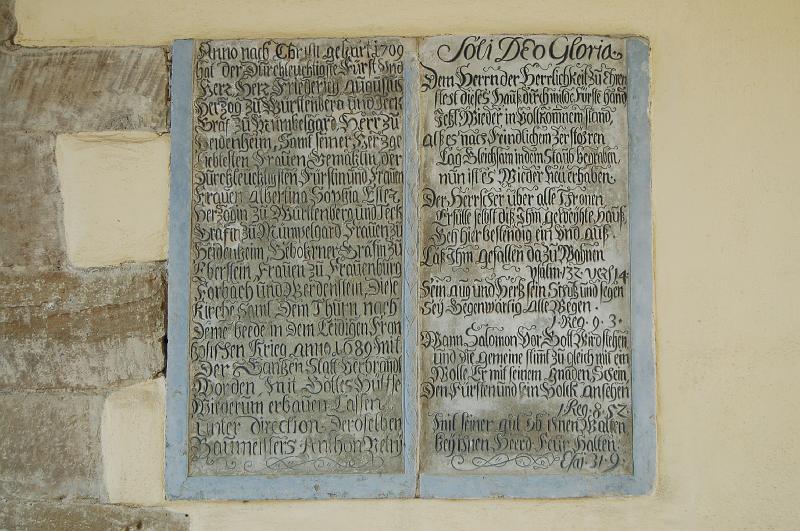 Anno nach Christi geburt 1709
hat der Durchleuchtigste Fürst Und
Herr Herr Friederich Augustus
Herzog zu Würtenberg und Teck
Graf zu Mümbelgard Herr zu
Heidenheim, Samt seiner Hertzge
liebtesten Frauen Gemahlin der
Durchleuchtigsten Fürstin und Frauen
Frauen Albertina Sophia Esther
Herzogin zu Würtenberg und Teck
Gräfin zu Mümpelgard Frauen zu
Heidenheim Gebohrner Gräfin zu
Eberstein Frauen zu Frauenburg
Forbach und Werdenstein, Diese
Kirche Samt Dem Thurn, nach
deme beede in dem Leidigen Fran
zösischen Krieg anno 1689 mit
Der Gantzen Statt Verbrandt
Worden, mit Gottes Hülffe
Wiederum erbauen Lassen
unter direction Deroselben
Baumeisters Anthon
Soli DEo Gloria
Dem Herrn der Herrlichkeit Zu Ehren
stest dieses Hauß durch milde Fürsten hand
Jetzt Wieder in Vollkomnem stand,
als es nach Feindlichem Zerstören
Lag Gleichsam in dem Staub begraben,
nun ist es Wieder Neu erhaben.
Der Herrscher über alle Thronen
Erfülle selbst diß Ihm geweyhte Hauß
Geh hier bestendig ein Und auß
Laß Ihm gefallen da zu Wohnen
Psalm 132. vers 14.
Sein aug und Hertz sein Schutz und segen
Sey Gegenwärtig Alle Wegen.
1. Reg. 9. 3.
Wann Salomon Vor Gott Wird stehen
und die gemeine stimt zu gleich mit ein
Wolle Er mit seinem Gnaden Schein
Den Fürsten und sein Volck ansehen
1. Reg. 8. 52
mit seiner güt ob ihnen Walten
bey ihnen Heerd Feür Halten.
Esai. 31. 9